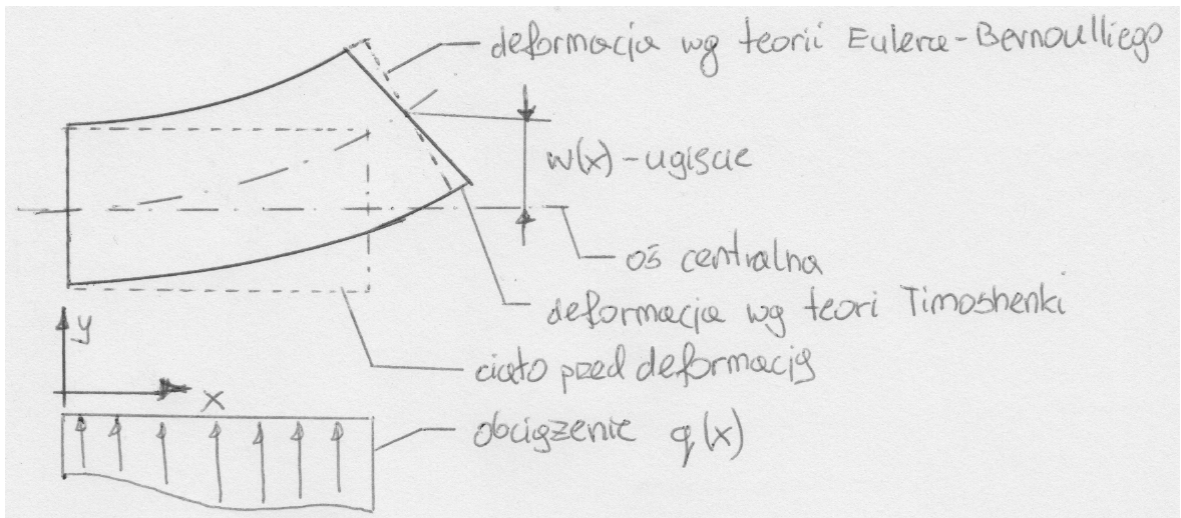 deformacja wg teorii Eulera-Bernoulliego
w(x) - ugięcie
oś centralna
deformacja wg teori Timoshenki
ciało przed deformacją
y
x
obciążenie q(x)